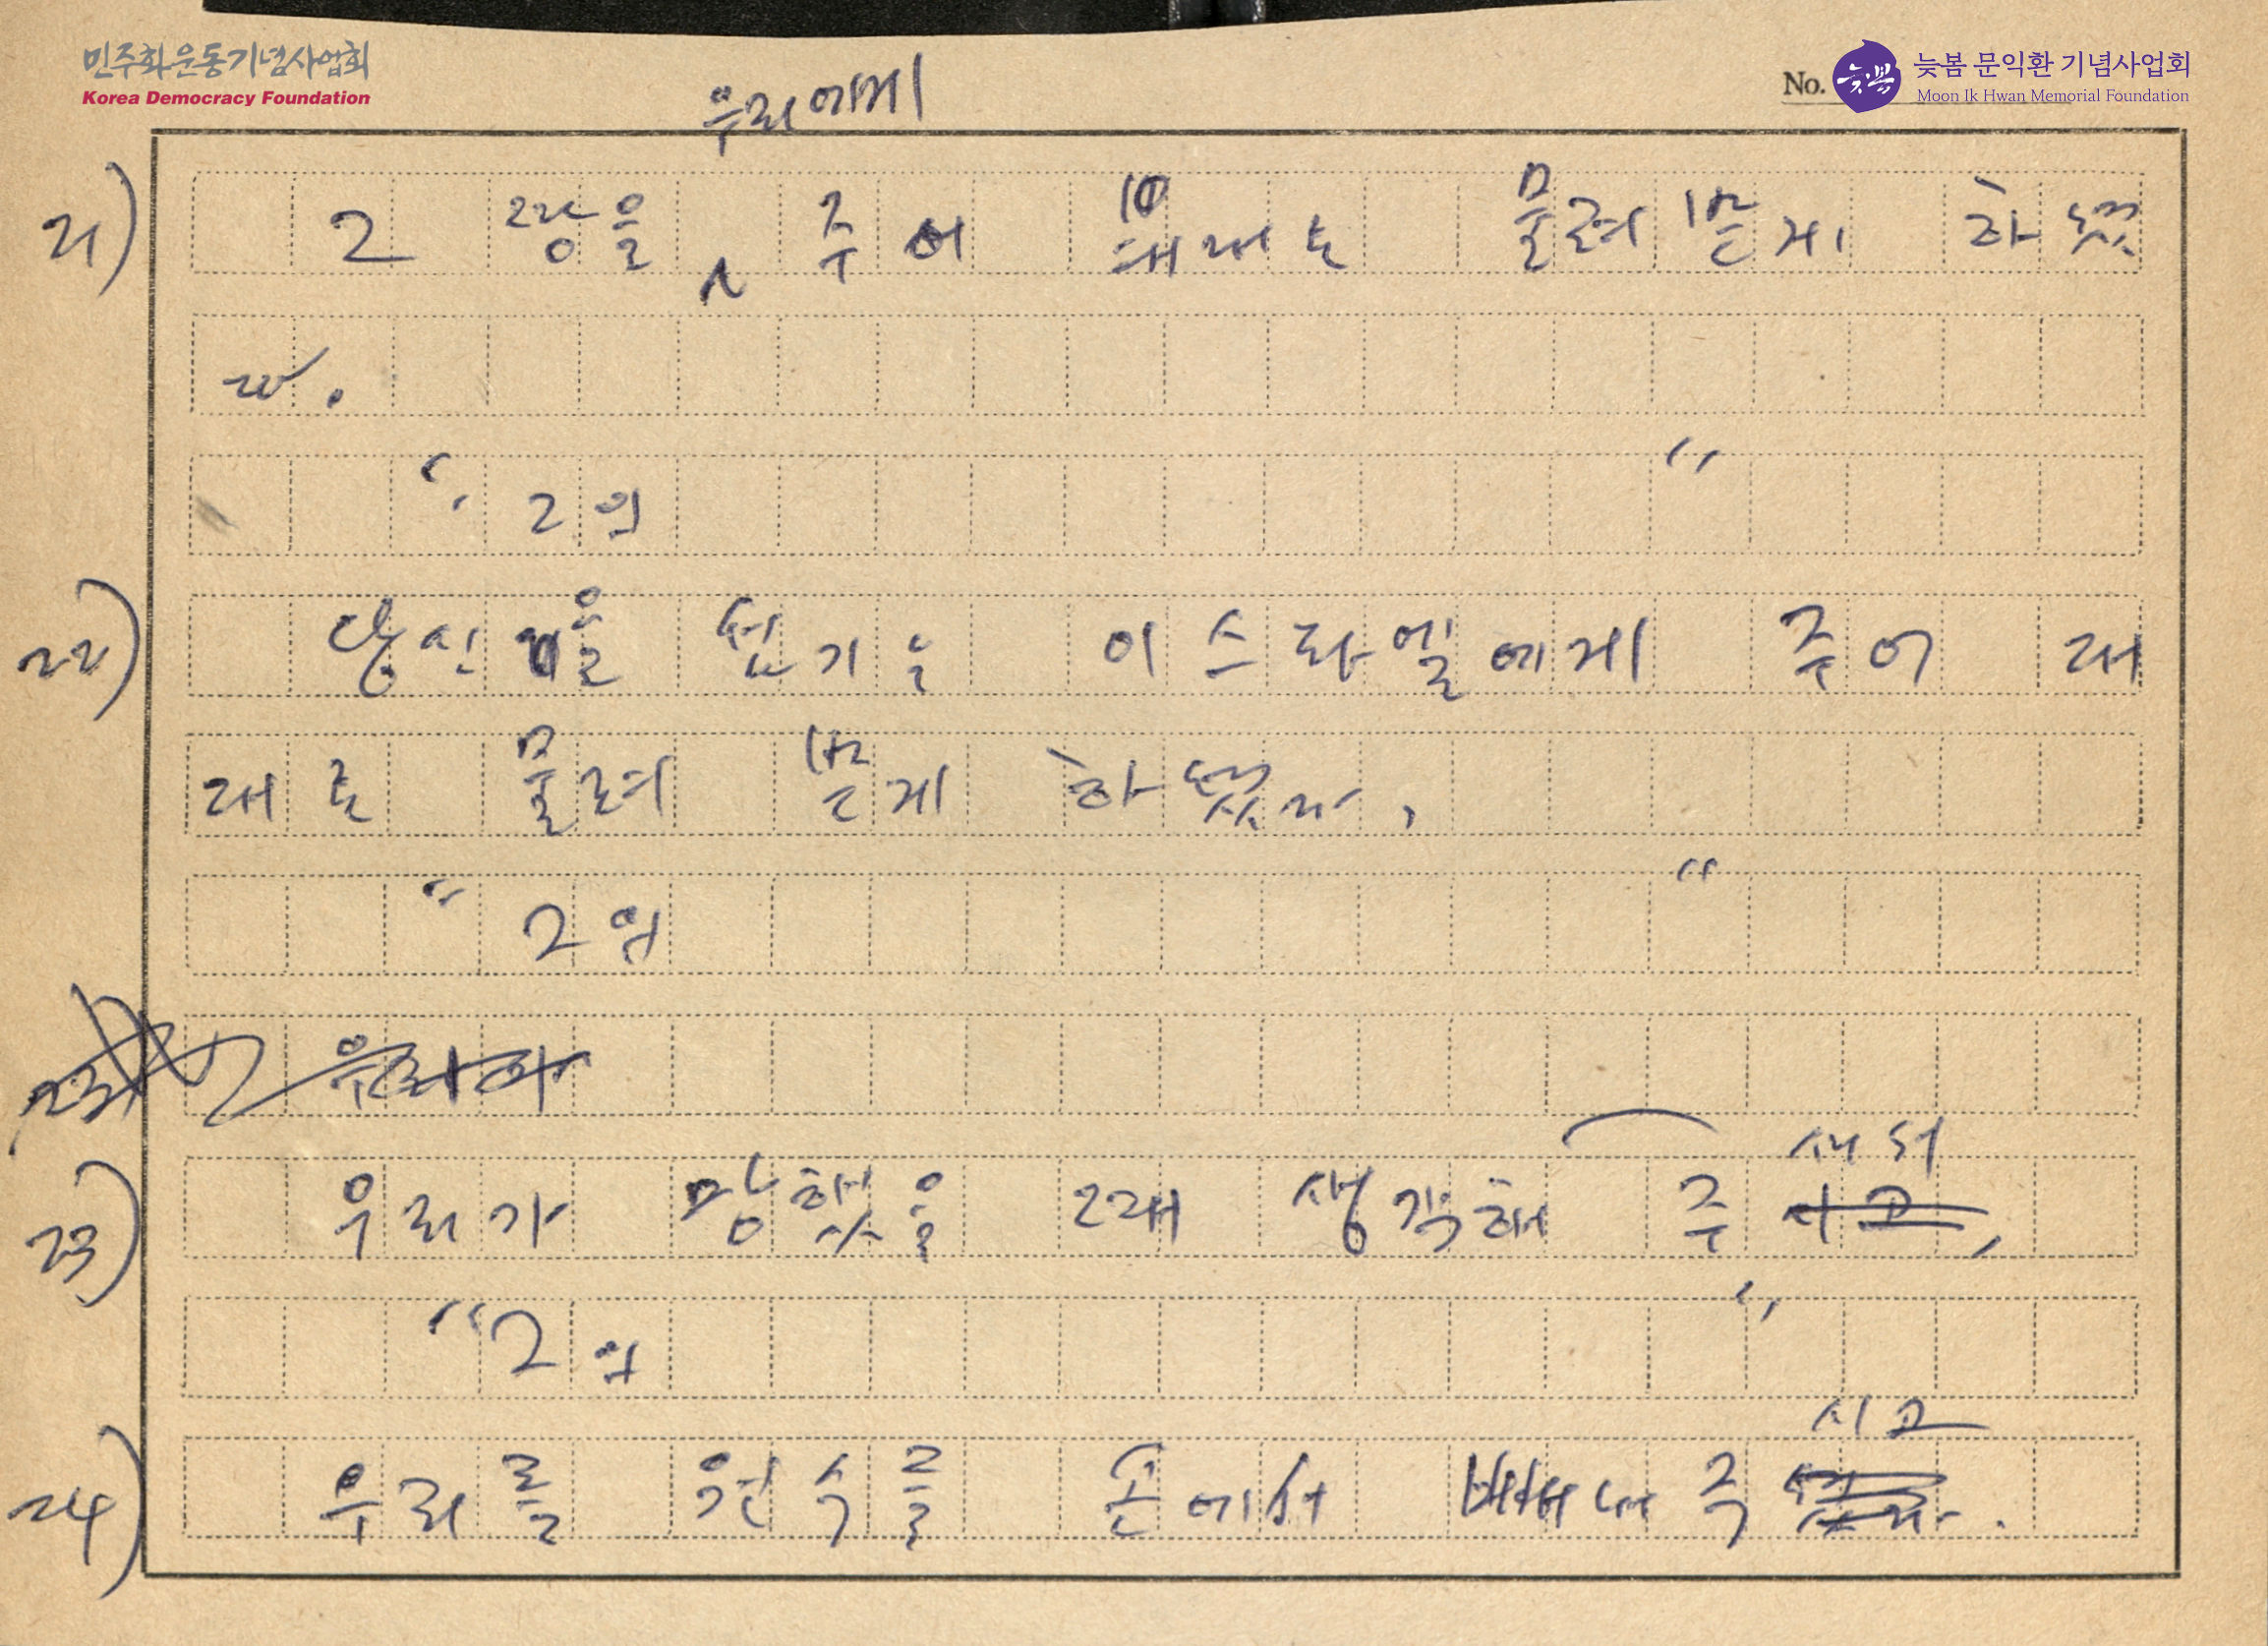 민주화운동기념사업회
Korea Democracy Foundation
No.
늦봄
늦봄 문익환 기념사업회
Moon Ik Hwan Memorial Foundation
우리에게
21) 그 땅을 주어 대대로 물려받게 하셨
다.
" 그의 "
22) 당신을 섬기는 이스라엘에게 주어 대
대로 물려 받게 하셨다,
" 그의 "
23) 우리가
새워
23) 우리가 망했을 때 생각해 주시고,
" 그의 "
시고
24) 우리를 원수들 손에서 빼내 주셨다.